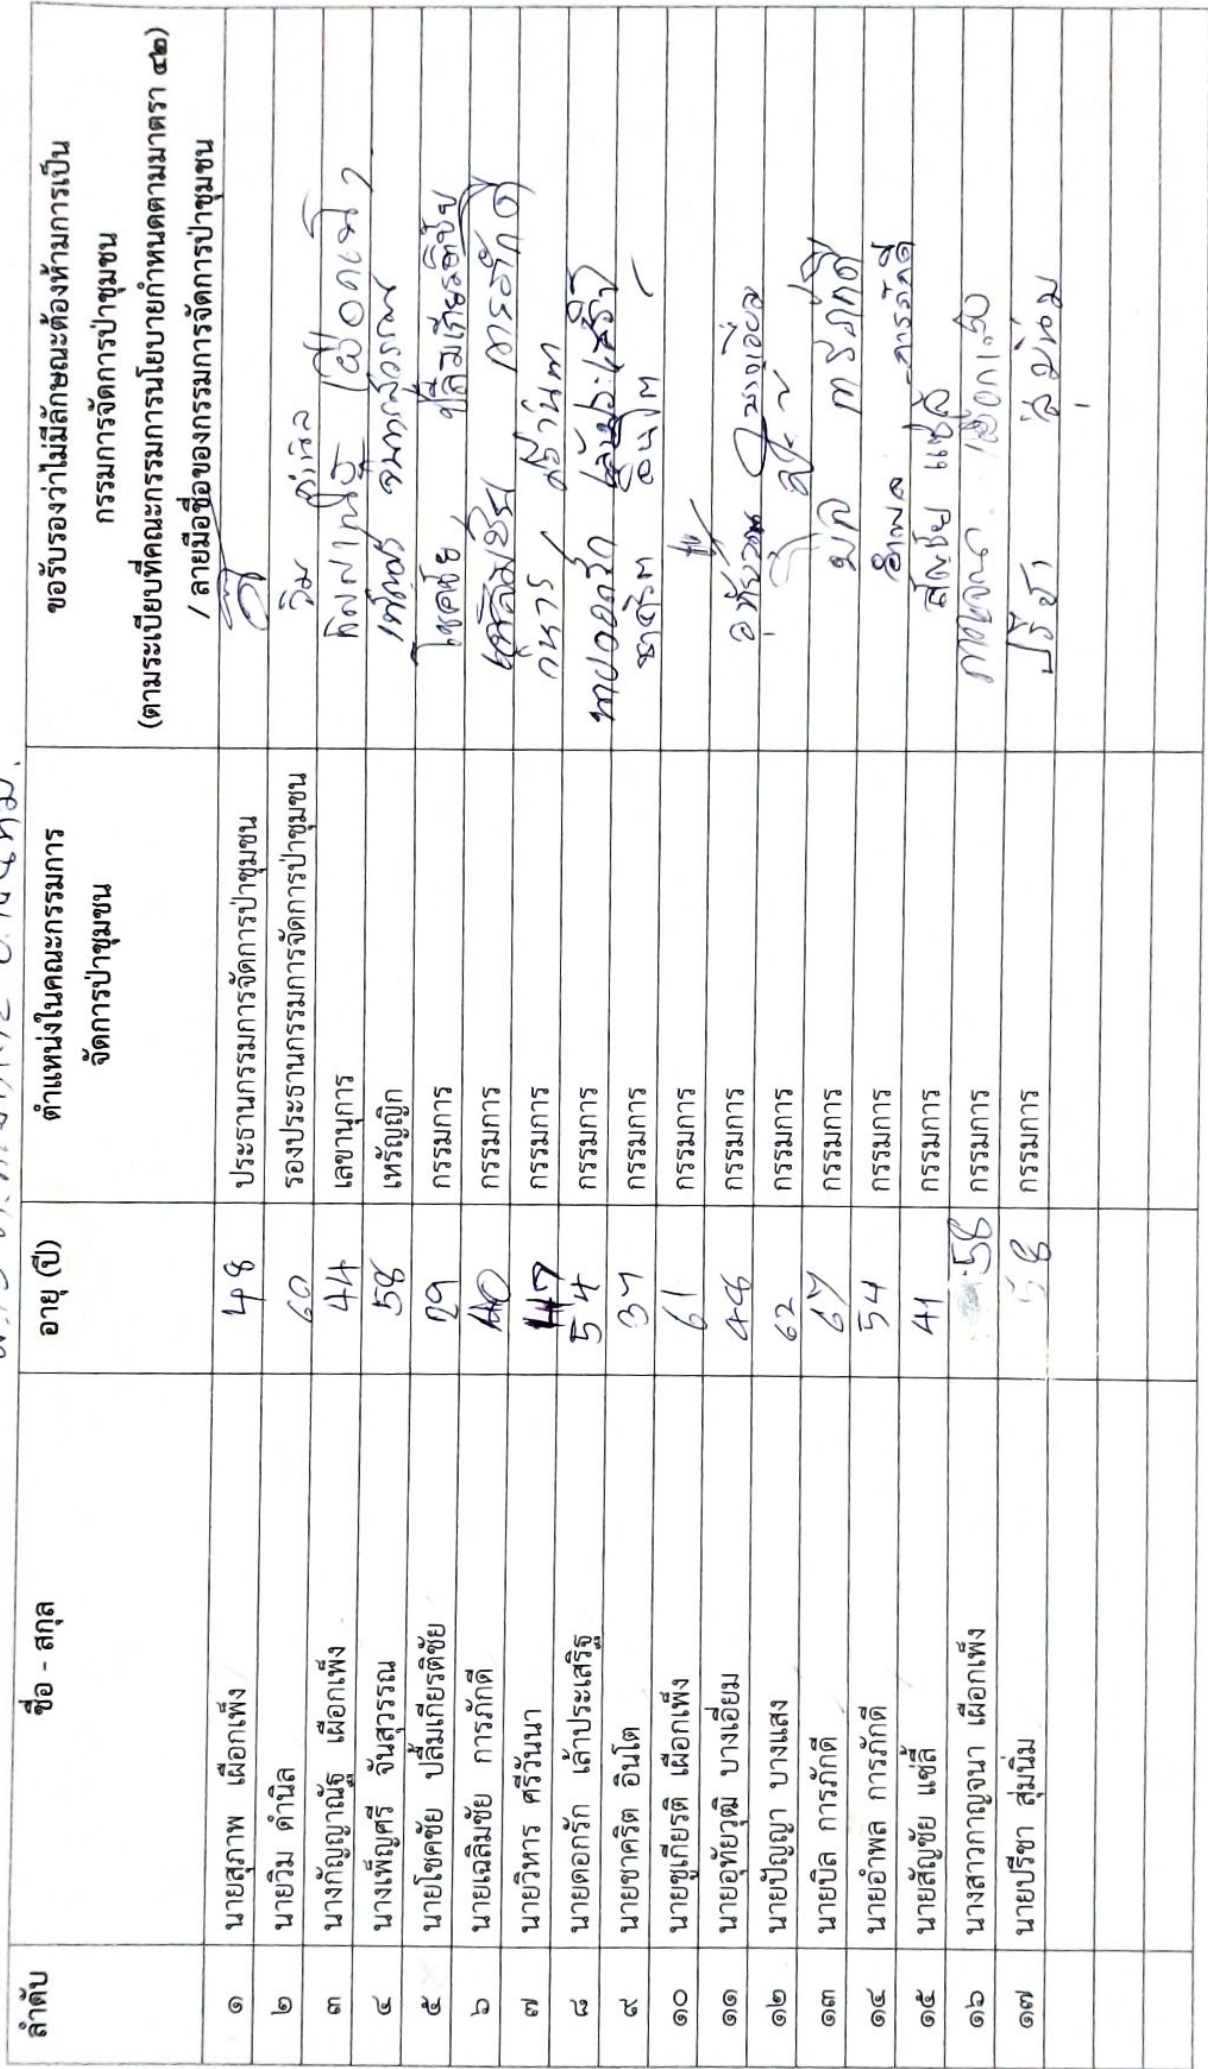 ลำดับ ชื่อ - สกุล อายุ (ปี) ตำแหน่งในคณะกรรมการ จัดการป่าชุมชน ขอรับรองว่าไม่มีลักษณะต้องห้ามการเป็น
กรรมการจัดการป่าชุมชน
(ตามระเบียบที่คณะกรรมการนโยบายกำหนดตามมาตรา ๔๒)
/ ลายมือชื่อของกรรมการจัดการป่าชุมชน
๑ นายสุภาพ เผือกเพ็ง 48 ประธานกรรมการจัดการป่าชุมชน
๒ นายวิม ดำนิล 60 รองประธานกรรมการจัดการป่าชุมชน วิม ดำนิล
๓ นางกัญญาณัฐ เผือกเพ็ง 44 เลขานุการ
๔ นางเพ็ญศรี จันสุวรรณ 58 เหรัญญิก
๕ นายโชคชัย ปลื้มเกียรติชัย 29 กรรมการ โชคชัย ปลื้มเกียรติชัย
๖ นายเฉลิมชัย การภักดี 40 กรรมการ เฉลิมชัย การภักดี
๗ นายวิหาร ศรีวันนา 47 กรรมการ
๘ นายดอกรัก เล้าประเสริฐ 54 กรรมการ
๙ นายชาคริต อินโต 37 กรรมการ ชาคริต อินโต
๑๐ นายชูเกียรติ เผือกเพ็ง 61 กรรมการ
๑๑ นายอุทัยวุฒิ บางเอี่ยม 48 กรรมการ
๑๒ นายปัญญา บางแสง 62 กรรมการ
๑๓ นายบิล การภักดี 67 กรรมการ
๑๔ นายอำพล การภักดี 54 กรรมการ อำพล การภักดี
๑๕ นายสัญชัย แซ่ลี้ 41 กรรมการ สัญชัย แซ่ลี้
๑๖ นางสาวกาญจนา เผือกเพ็ง 58 กรรมการ
๑๗ นายปรีชา สุ่มนิ่ม 58 กรรมการ ปรีชา